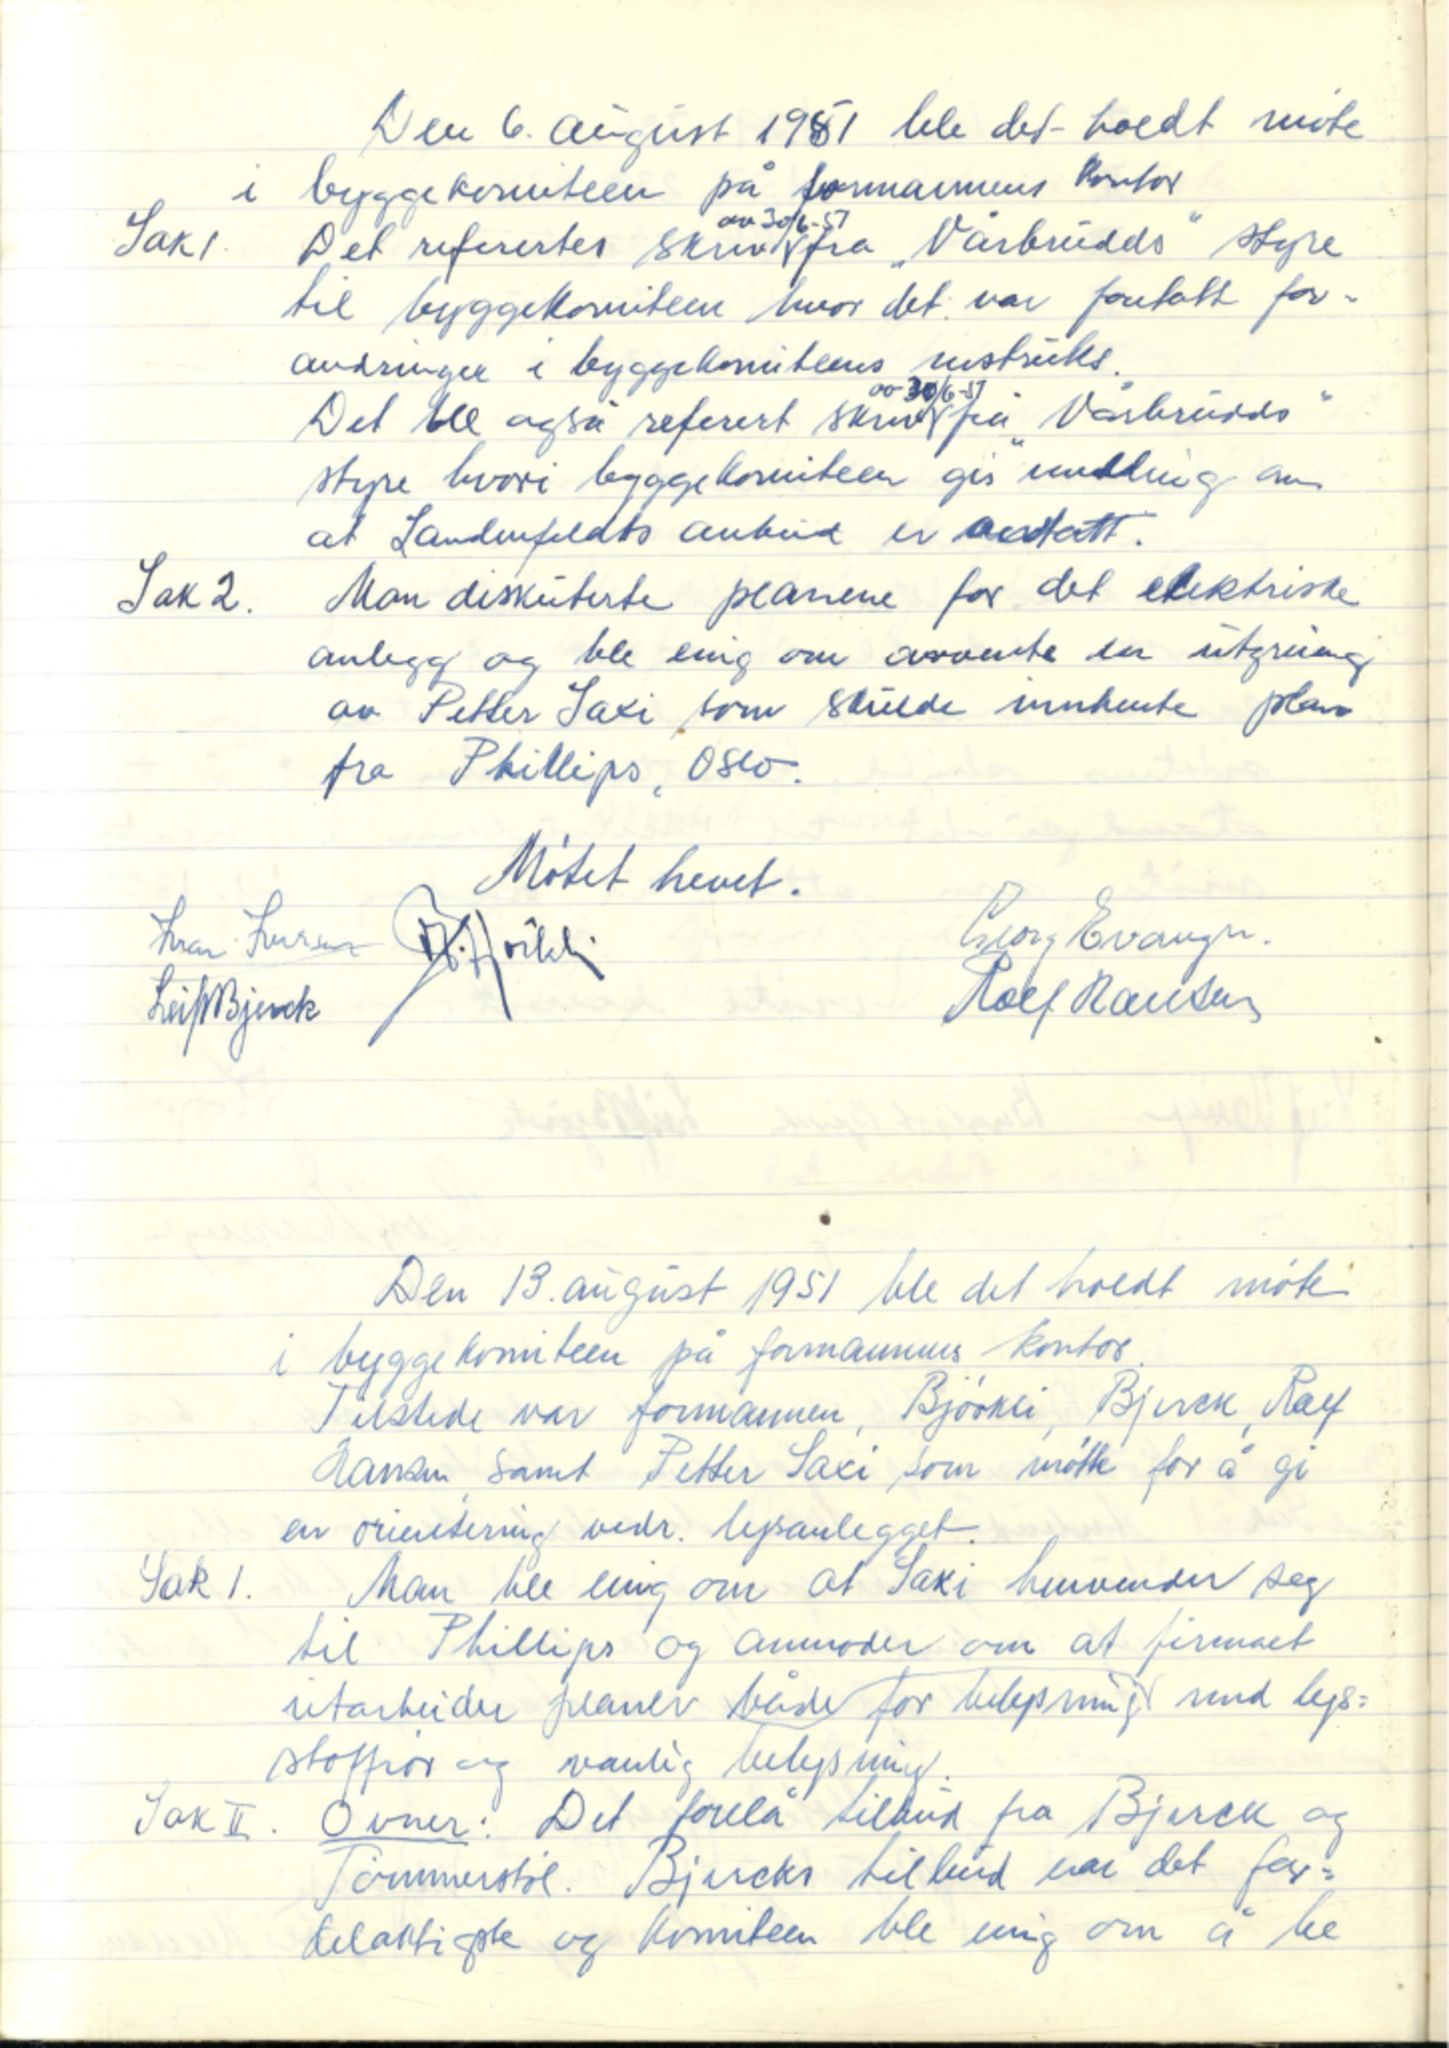 Den 6. august 1951 ble det holdt møte
i byggekomiteen på formannens kontor
Sak 1. Det refertes skriv av 30/6-51 fra „Vårbrudds" styre
til byggekomiteen hvor det var foretatt for-
andringer i byggekomiteens instruks.
Det ble også referert skriv av 30/6-51 fra „Vårbrudds"
styre hvori byggekomiteen gis melding om
at Landenfeldts anbud er antatt.
Sak 2. Man diskuterte planene for det elektriske
anlegg og ble enig om avvente en utgreiing
av Petter Saxi som skulde innhente plan
fra Phillips, Oslo.
Møtet hevet.
Georg Evangr.
Leif Bjerck
Rolf Hansen
Den 13. august 1951 ble det holdt møte
i byggekomiteen på formannens kontor.
Tilstede var formannen, Bjørkli, Bjerck, Rolf
Hansen samt Petter Saxi som møtte for å gi
en orientering vedr. lysanlegget.
Sak 1. Man ble enig om at Saxi henvender seg
til Phillips og anmoder om at firmaet
utarbeider planer både for belysning med lys=
stoffrør og vanlig belysning.
Sak II. Ovner: Det forelå tilbud fra Bjerck og
Tømmerstøl. Bjercks tilbud var det for=
delaktigste og komiteen ble enig om å be